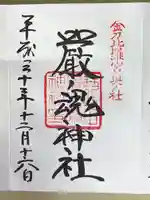 金刀比羅宮奥社
嚴魂神社
平成三十年十二月十六日